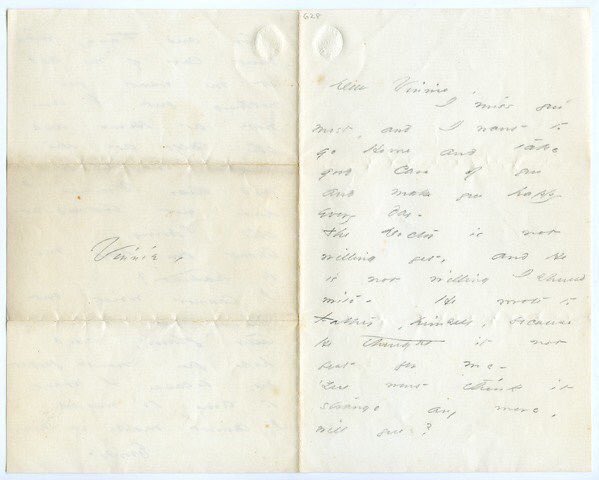 Vinnie,
Dear Vinnie,
I miss you
most, and I want to
go Home and take
good Care of you
and make you happy
every day -
The Doctor is not
willing yet, and He
is not willing I should
write - He wrote to
Father, himself, because
He thought it not
best for me -
You wont think it
strange any more,
will you?